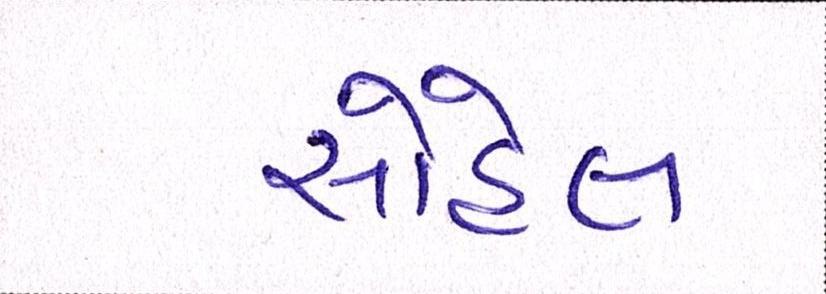 સોહેલ